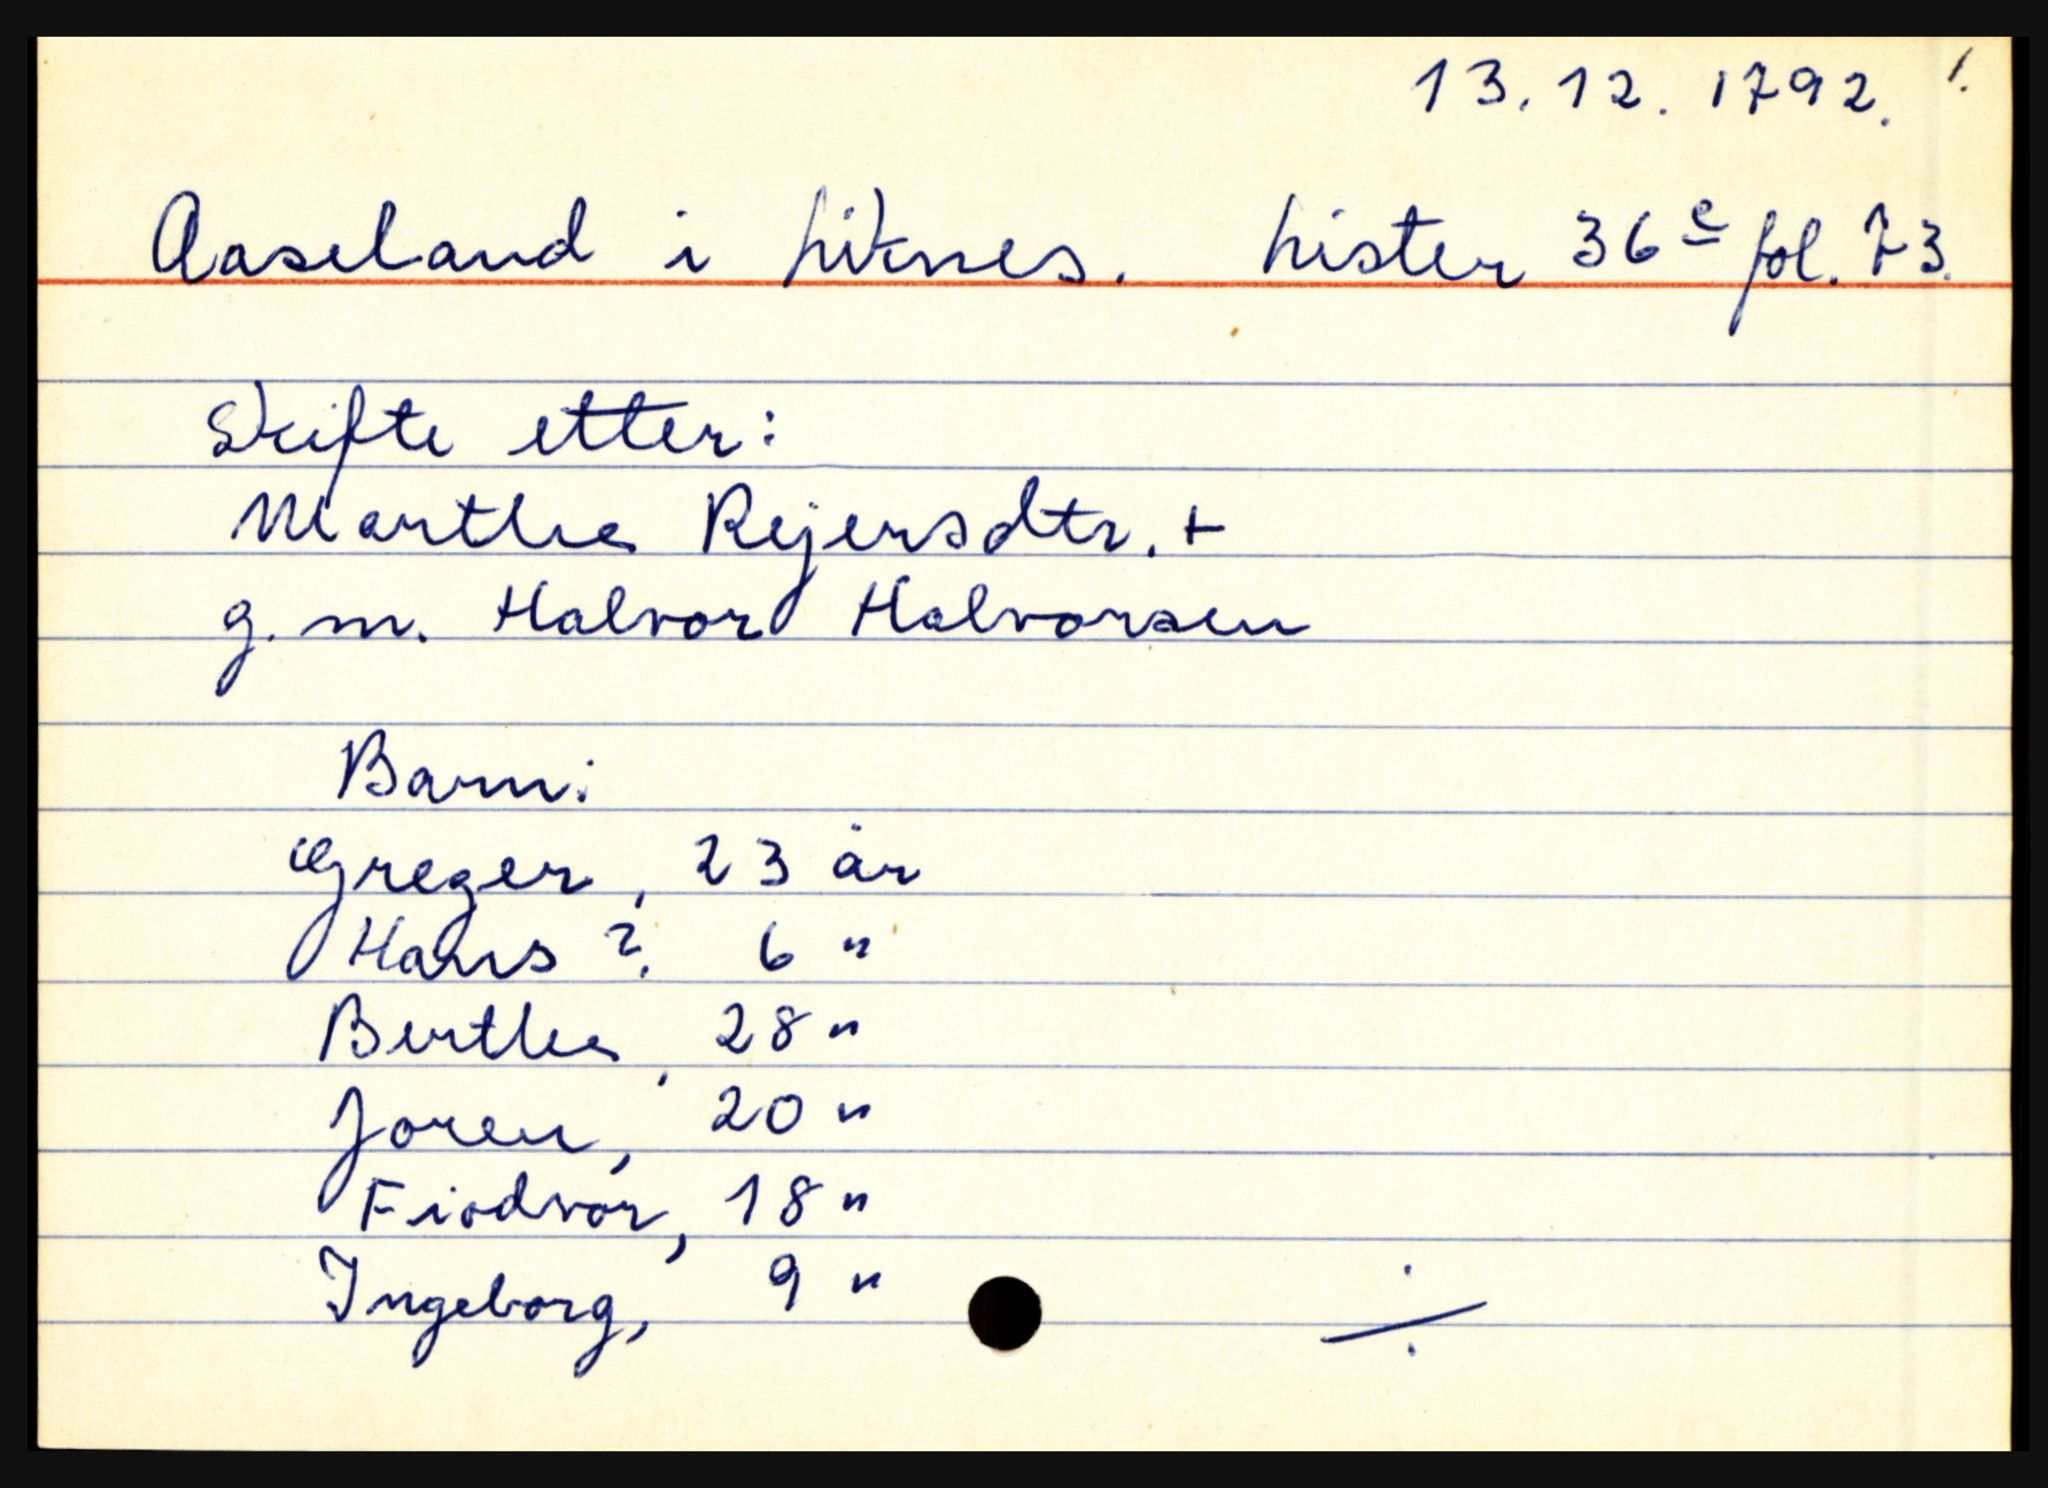 13.12.1792. !
Aaseland i Liknes. Lister 36 c fol. 73.
Skifte etter:
Marthe Rejersdtr. +
g. m. Halvor Halvorsen
Barn:
Greger, 23 år
Hans ?. 6 "
Berthe, 28 "
Joren, 20 "
Fiodvor, 18 "
Ingeborg, 9 "
÷